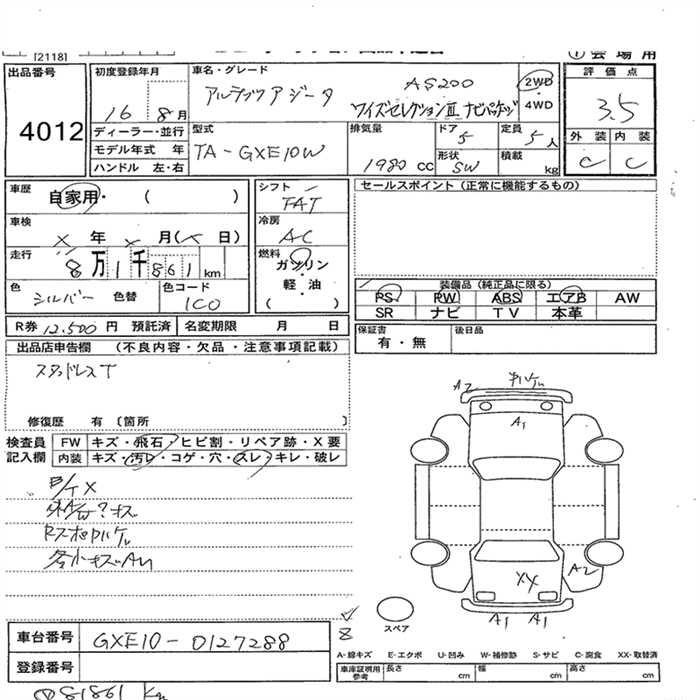 [2118]
① 会場用
出品番号
4012
初度登録年月
16 8月
ディーラー・並行
モデル年式 年
ハンドル 左・右
車名・グレード
アルテッツァジータ AS200
ワイズセレクションⅢ ナビパッケージ
2WD
・
4WD
型式
TA-GXE10W
排気量
1980 cc
ドア
5
定員
5人
形状
SW
積載
kg
評価点
3.5
外装 内装
C C
車歴
自家用・( )
車検
X 年 X 月( 日)
走行
8万1千861km
色
シルバー 色替
色コード
1C0
シフト
FAT
冷房
AC
燃料
ガソリン
軽・油
( )
セールスポイント(正常に機能するもの)
装備品(純正品に限る)
PS PW ABS エアB AW
SR ナビ TV 本革
R券 12,500 円 預託済 名変期限 月 日
保証書
有・無
後日品
出品店申告欄 (不良内容・欠品・注意事項記載)
スタッドレスT
修復歴 有 〔箇所 〕
検査員
記入欄
FW キズ・飛石・ヒビ割・リペア跡・X要
内装 キズ・汚レ・コゲ・穴・スレ・キレ・破レ
各小キズAU
A2
A1
A2
XX
A1 A1
スペア
車台番号 GXE10-0127288
登録番号
A-線キズ E-エクボ U-凹み W-補修跡 S-サビ C-腐食 XX-取替済
車庫証明用
参考
長さ cm 幅 cm 高さ cm
81861 Km